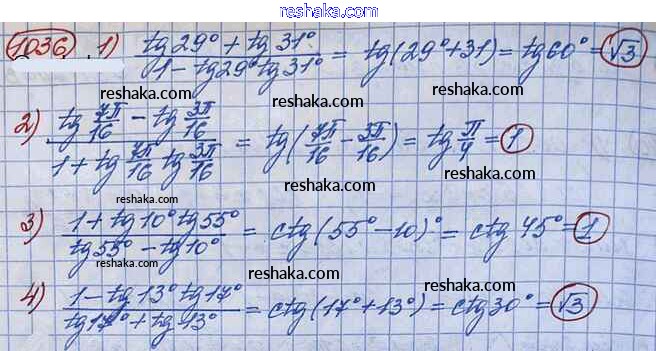 reshak.com
1036 1) (tg 29° + tg 31°)/(1 - tg 29° tg 31°) = tg(29° + 31) = tg 60° = √3
reshaka.com reshaka.com
2) (tg 7π/16 - tg 3π/16)/(1 + tg 7π/16 tg 3π/16) = tg(7π/16 - 3π/16) = tg π/4 = 1
reshaka.com reshaka.com
reshaka.com
3) (1 + tg 10° tg 55°)/(tg 55° - tg 10°) = ctg(55° - 10)° = ctg 45° = 1
reshaka.com reshaka.com
reshaka.com
4) (1 - tg 13° tg 17°)/(tg 17° + tg 13°) = ctg(17° + 13°) = ctg 30° = √3
reshaka.com reshaka.com